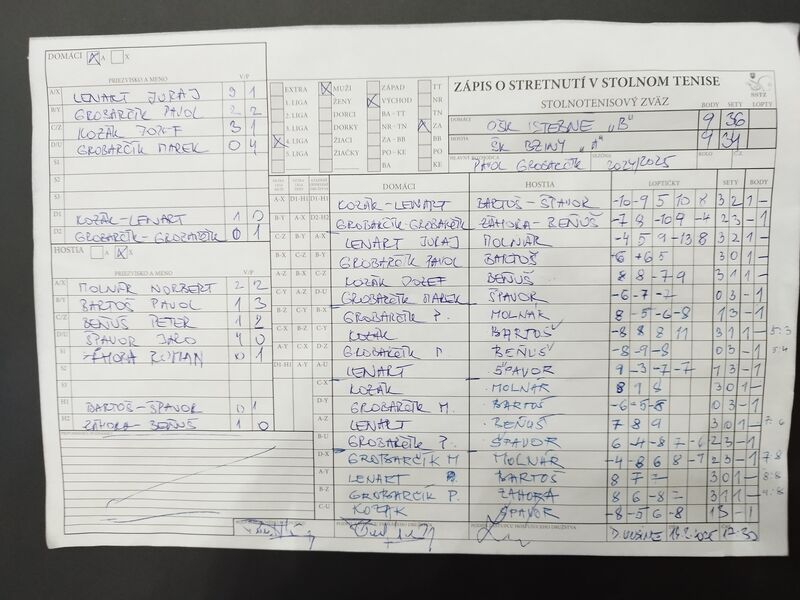 DOMÁCI X A X
PRIEZVISKO A MENO V/P
A/X LENART JURAJ 3 1
B/Y GROBARČÍK PAVOL 2 2
C/Z KOZÁK JOZEF 3 1
D/U GROBARČÍK MAREK 0 4
S1
S2
S3
D1 KOZÁK-LENART 1 0
D2 GROBARČÍK-GROBARČÍK 0 1
HOSTIA A X X
PRIEZVISKO A MENO V/P
A/X MOLNÁR NORBERT 2 2
B/Y BARTOŠ PAVOL 1 3
C/Z BEŇUŠ PETER 1 2
D/U ŠPAVOR JARO 4 0
S1 ZÁHORA ROMAN 0 1
S2
S3
H1 BARTOŠ-ŠPAVOR 0 1
H2 ZÁHORA-BEŇUŠ 1 0
EXTRA X MUŽI ZÁPAD TT
1. LIGA ŽENY X VÝCHOD NR
2. LIGA DORCI BA-TT TN
3. LIGA DORKY NR-TN X ZA
X ŽIACI ZA-BB BB
5. LIGA ŽIAČKY PO-KE PO
BA KE
ZÁPIS O STRETNUTÍ V STOLNOM TENISE
STOLNOTENISOVÝ ZVÄZ
SSTZ
BODY SETY LOPTY
DOMÁCI OŠK ISTEBNÉ "B" 9 36
HOSTIA ŠK BZINY "A" 9 34
HLAVNÝ ROZHODCA PAVOL GROBARČÍK SEZÓNA 2024/2025 KOLO Č.Z.
DOMÁCI HOSTIA LOPTIČKY SETY BODY
A-X D1-H1 D1-H1 KOZÁK-LENART BARTOŠ-ŠPAVOR -10 -9 5 10 8 3 2 1 -
B-Y A-Y D2-H2 GROBARČÍK-GROBARČÍK ZÁHORA-BEŇUŠ -7 8 -10 9 -4 2 3 - 1
C-Z B-Y A-X LENART JURAJ MOLNÁR -4 5 9 -13 8 3 2 1 -
GROBARČÍK PAVOL BARTOŠ 3 0 1 -
KOZÁK JOZEF BEŇUŠ 8 8 -7 9 3 1 1 -
GROBARČÍK MAREK ŠPAVOR -6 -7 -7 0 3 - 1
GROBARČÍK P. MOLNÁR 8 -5 -6 -8 1 3 - 1
KOZÁK BARTOŠ -8 8 8 11 3 1 1 - 5:3
GROBARČÍK P BEŇUŠ -8 -9 -8 0 3 - 1 5:4
LENART ŠPAVOR 9 -3 -7 -7 1 3 - 1
C-X KOZÁK MOLNÁR 8 9 8 3 0 1 -
D-Y GROBARČÍK M. BARTOŠ -6 -5 -8 0 3 - 1
A-Z LENART BEŇUŠ 7 8 9 3 0 1 - 7:6
B-U GROBARČÍK P. ŠPAVOR 6 -4 -8 7 -6 2 3 - 1
D-X GROBARČÍK M MOLNÁR 2 3 - 1 7:8
A-Y LENART BARTOŠ 8 7 3 0 1 -
B-Z GROBARČÍK P. ZÁHORA 8 6 -8 3 1 1 -
C-U KOZÁK ŠPAVOR -8 -5 6 -8 1 3 - 1
17:30